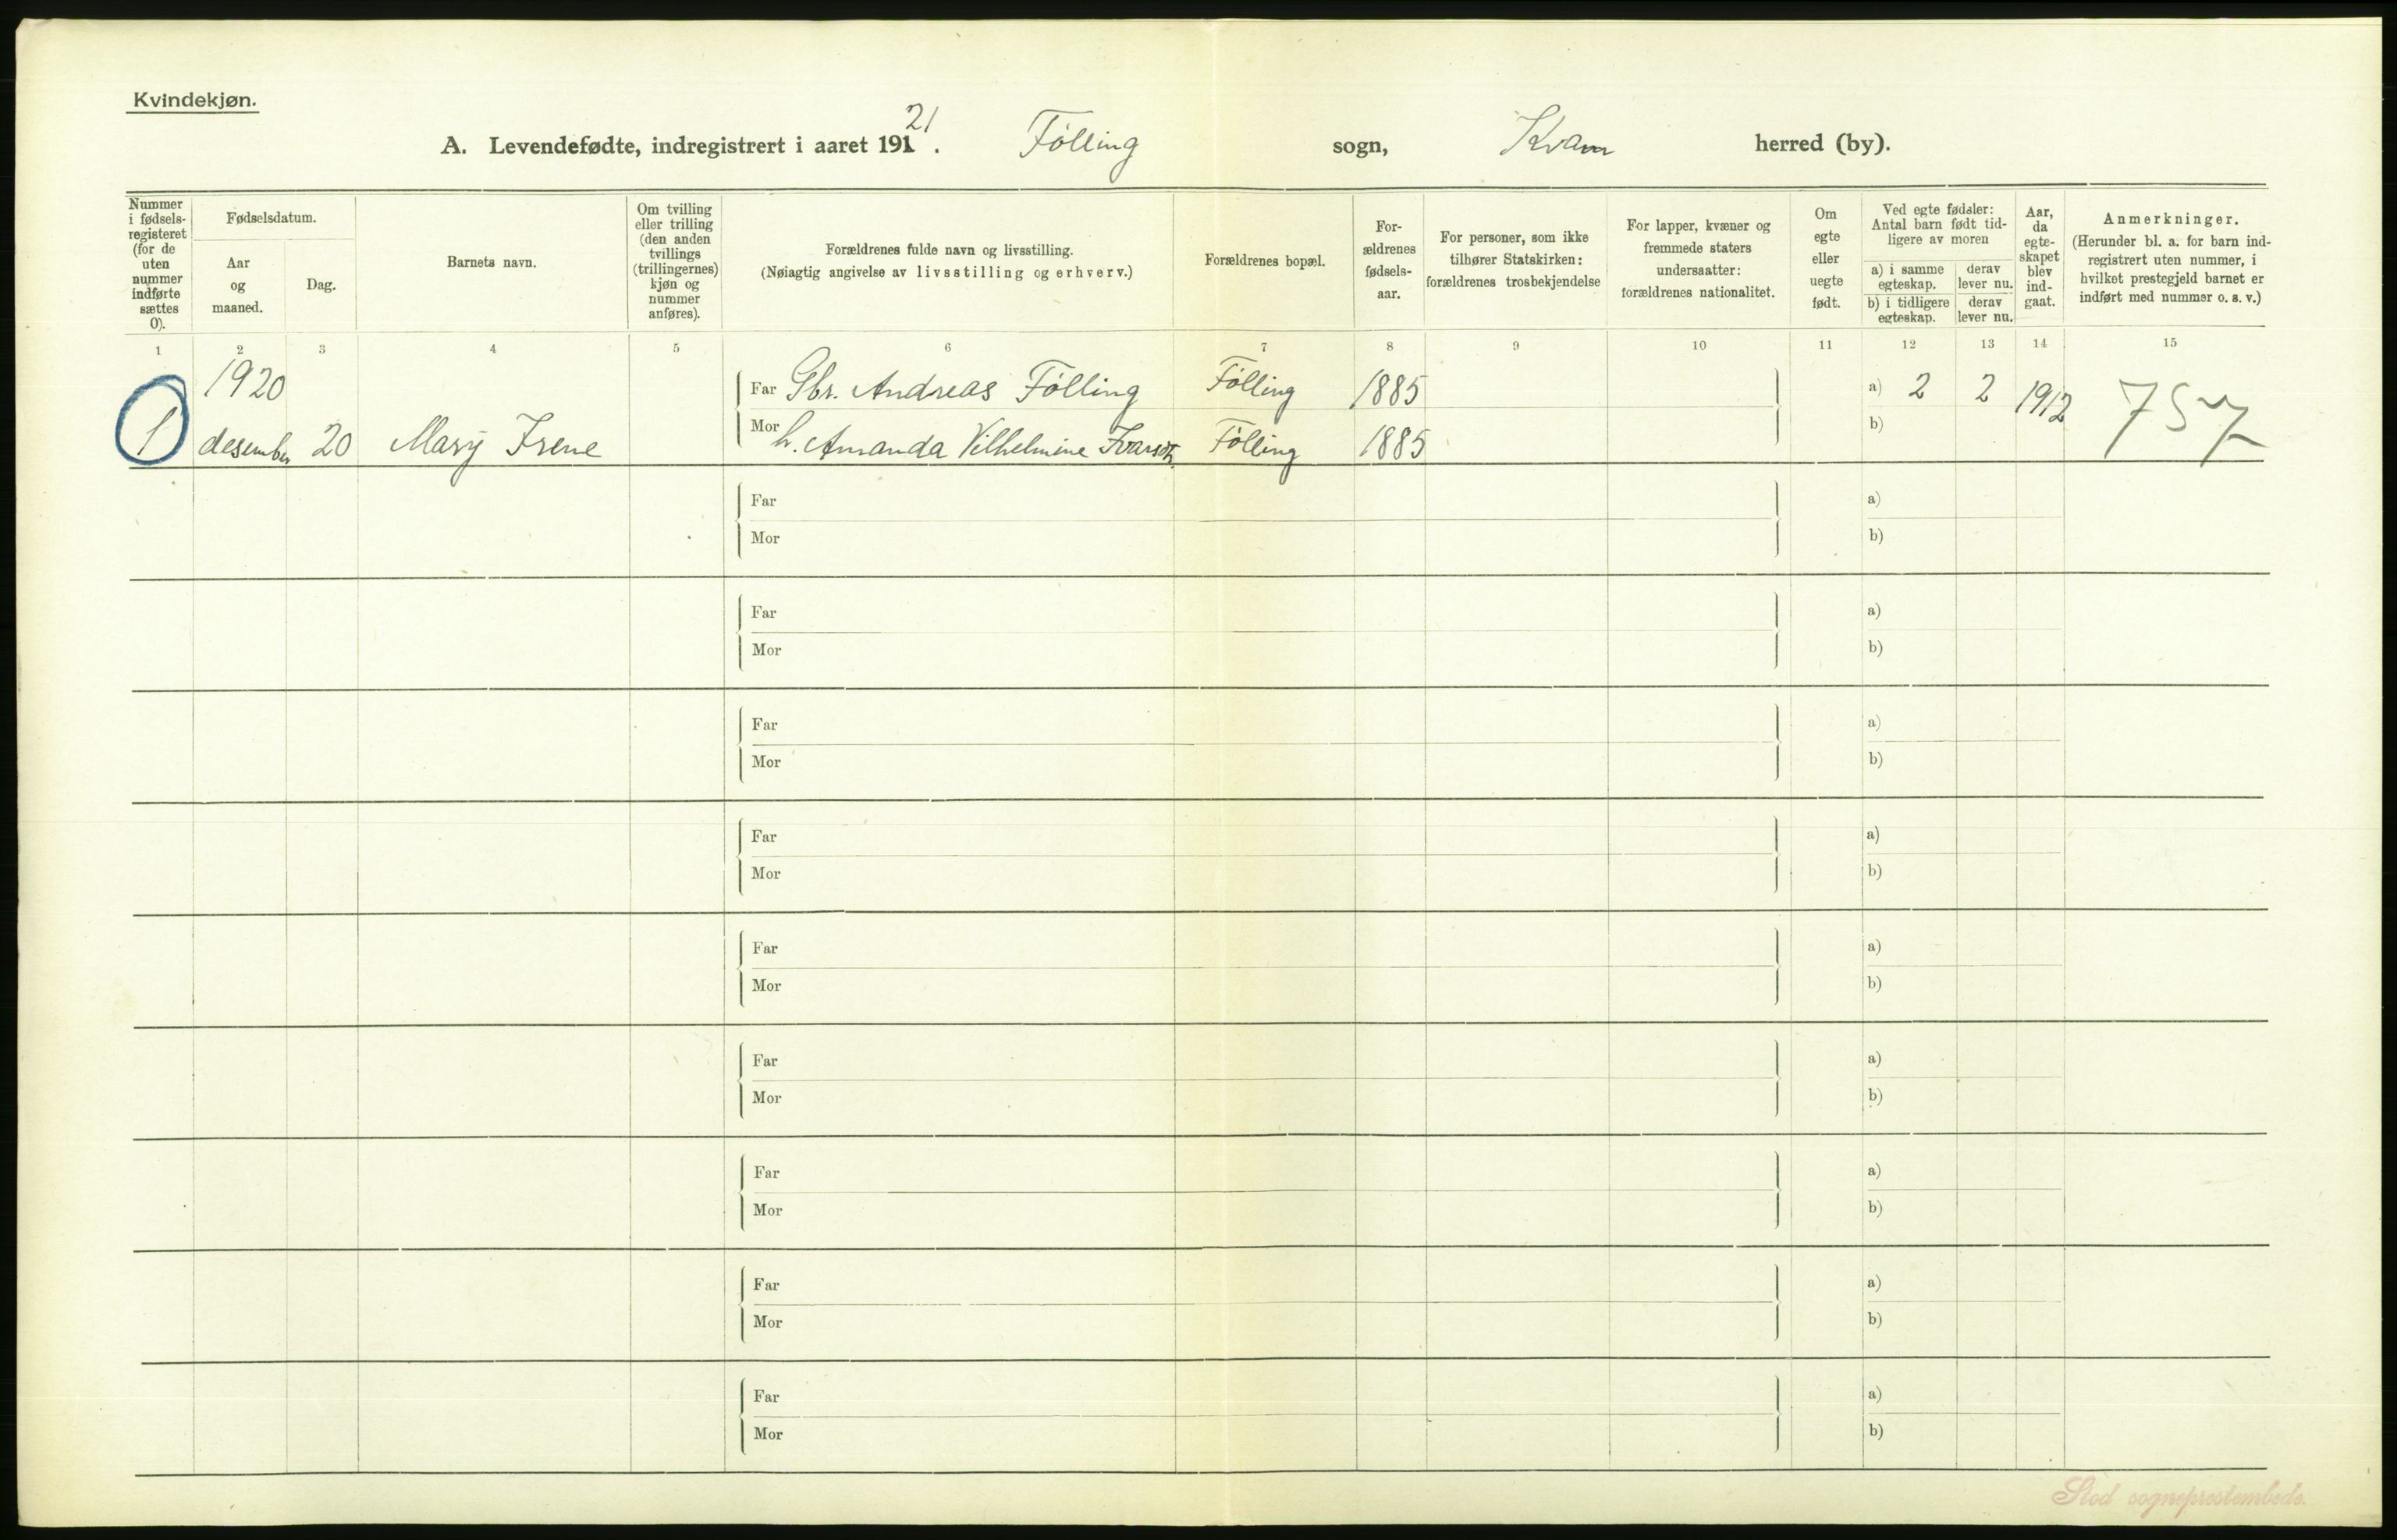 Kvindekjøn.
A. Levendefødte, indregistrert i aaret 191 21. Følling sogn, Kvam herred (by).
Nummer i fødsels-registeret (for de uten nummer indførte sættes 0).
Fødselsdatum.
Aar og maaned.
Dag.
Barnets navn.
Om tvilling eller trilling (den anden tvillings (trillingernes) kjøn og nummer anføres).
Forældrenes fulde navn og livsstilling.
(Nøiagtig angivelse av livsstilling og erhverv.)
Forældrenes bopæl.
For-ældrenes fødsels-aar.
For personer, som ikke tilhører Statskirken: forældrenes trosbekjendelse
For lapper, kvæner og fremmede staters undersaatter: forældrenes nationalitet.
Om egte eller uegte født.
Ved egte fødsler: Antal barn født tid-ligere av moren
a) i samme egteskap.
derav lever nu.
b) i tidligere egteskap.
derav lever nu.
Aar, da egte-skapet blev ind-gaat.
Anmerkninger.
(Herunder bl. a. for barn ind-registrert uten nummer, i hvilket prestegjeld barnet er indført med nummer o. s. v.)
1 2 3 4 5 6 7 8 9 10 11 12 13 14 15
1920 Far Gbr. Andreas Følling Følling 1885 a) 2 2 1912 757
1 desember 20 Mary Irene Mor h. Amanda Vilhelmine Følling 1885 b)
Far a)
Mor b)
Far a)
Mor b)
Far a)
Mor b)
Far a)
Mor b)
Far a)
Mor b)
Far a)
Mor b)
Far a)
Mor b)
Far a)
Mor b)
Far a)
Mor b)
Stod sogneprestembede.